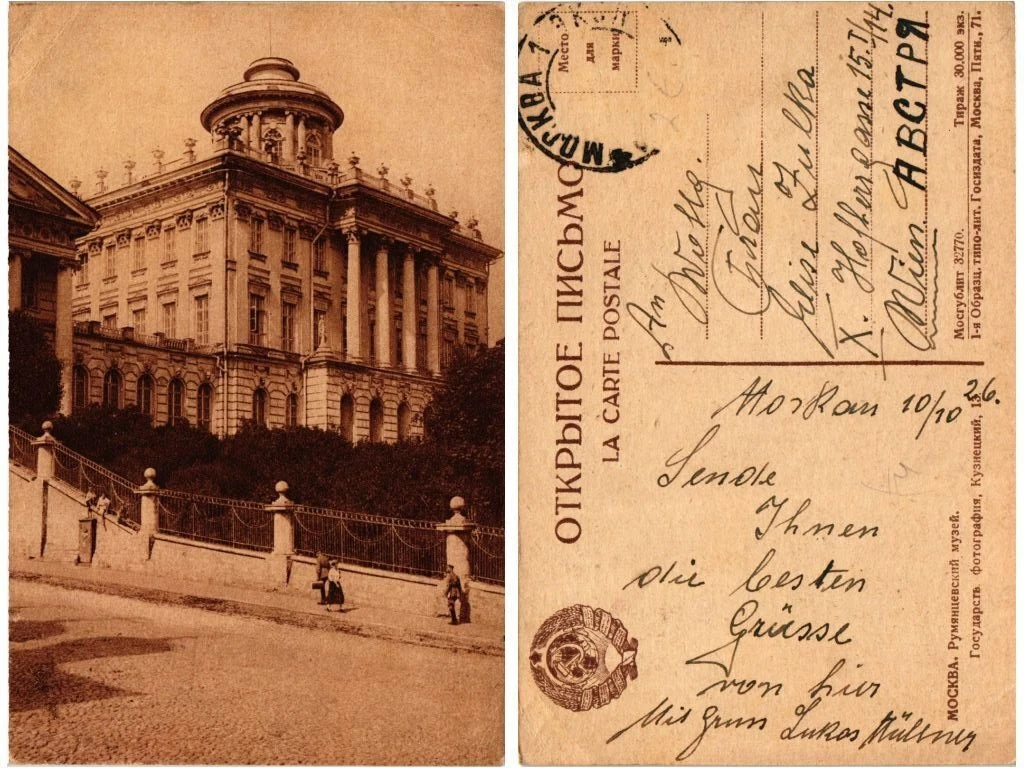 Место
для
марки
МОСКВА 1
ОТКРЫТОЕ ПИСЬМО
LA CARTE POSTALE
An
Wollg.
Elise Zulka
X. Hofherrgasse 15. I/14.
Wien.
АВСТРЯ
Мосгублит 32770. Тираж 30.000 экз.
1-я Образц. типо-лит. Госиздата, Москва, Пятн., 71.
Moskau 10/10 26.
Sende
Ihnen
die besten
Grüsse
von hier
Lukas Hüttner
МОСКВА. Румянцевский музей.
Государств фотография, Кузнецкий, 13.